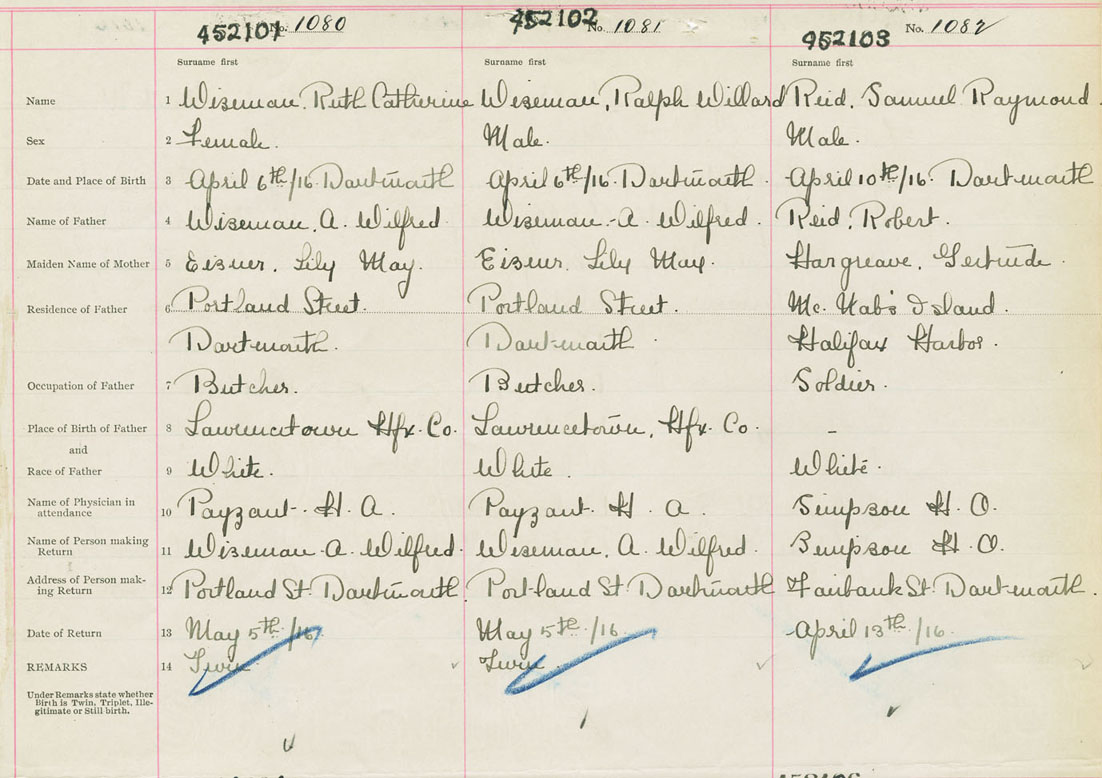 452101 No. 1080 452102 No. 1081 452103 No. 1082
Surname first Surname first Surname first
Name 1 Wiseman, Ruth Catherine Wiseman, Ralph Willard Reid, Samuel Raymond
Sex 2 Female. Male. Male.
Date and Place of Birth 3 April 6th/16. Dartmouth April 6th/16. Dartmouth April 10th/16. Dartmouth
Name of Father 4 Wiseman, A. Wilfred Wiseman - A. Wilfred. Reid, Robert.
Maiden Name of Mother 5 Eisner, Lily May. Eisner, Lily May. Hargreave, Gertrude.
Residence of Father 6 Portland Street. Portland Street. Mc. Nab's Island.
Dartmouth. Dartmouth. Halifax Harbor.
Occupation of Father 7 Butcher. Butcher. Soldier.
Place of Birth of Father 8 Lawrencetown Hfx. Co. Lawrencetown, Hfx. Co. -
and
Race of Father 9 White. White. White.
Name of Physician in
attendance 10 Payzant. H. A. Payzant. H. A. Simpson H. O.
Name of Person making
Return 11 Wiseman A. Wilfred. Wiseman, A. Wilfred. Simpson H. O.
Address of Person mak-
ing Return 12 Portland St. Dartmouth. Portland St. Dartmouth Fairbank St. Dartmouth.
Date of Return 13 May 5th/16. May 5th/16. April 13th/16.
REMARKS 14 Twin. Twin.
Under Remarks state whether
Birth is Twin, Triplet, Ille-
gitimate or Still birth.